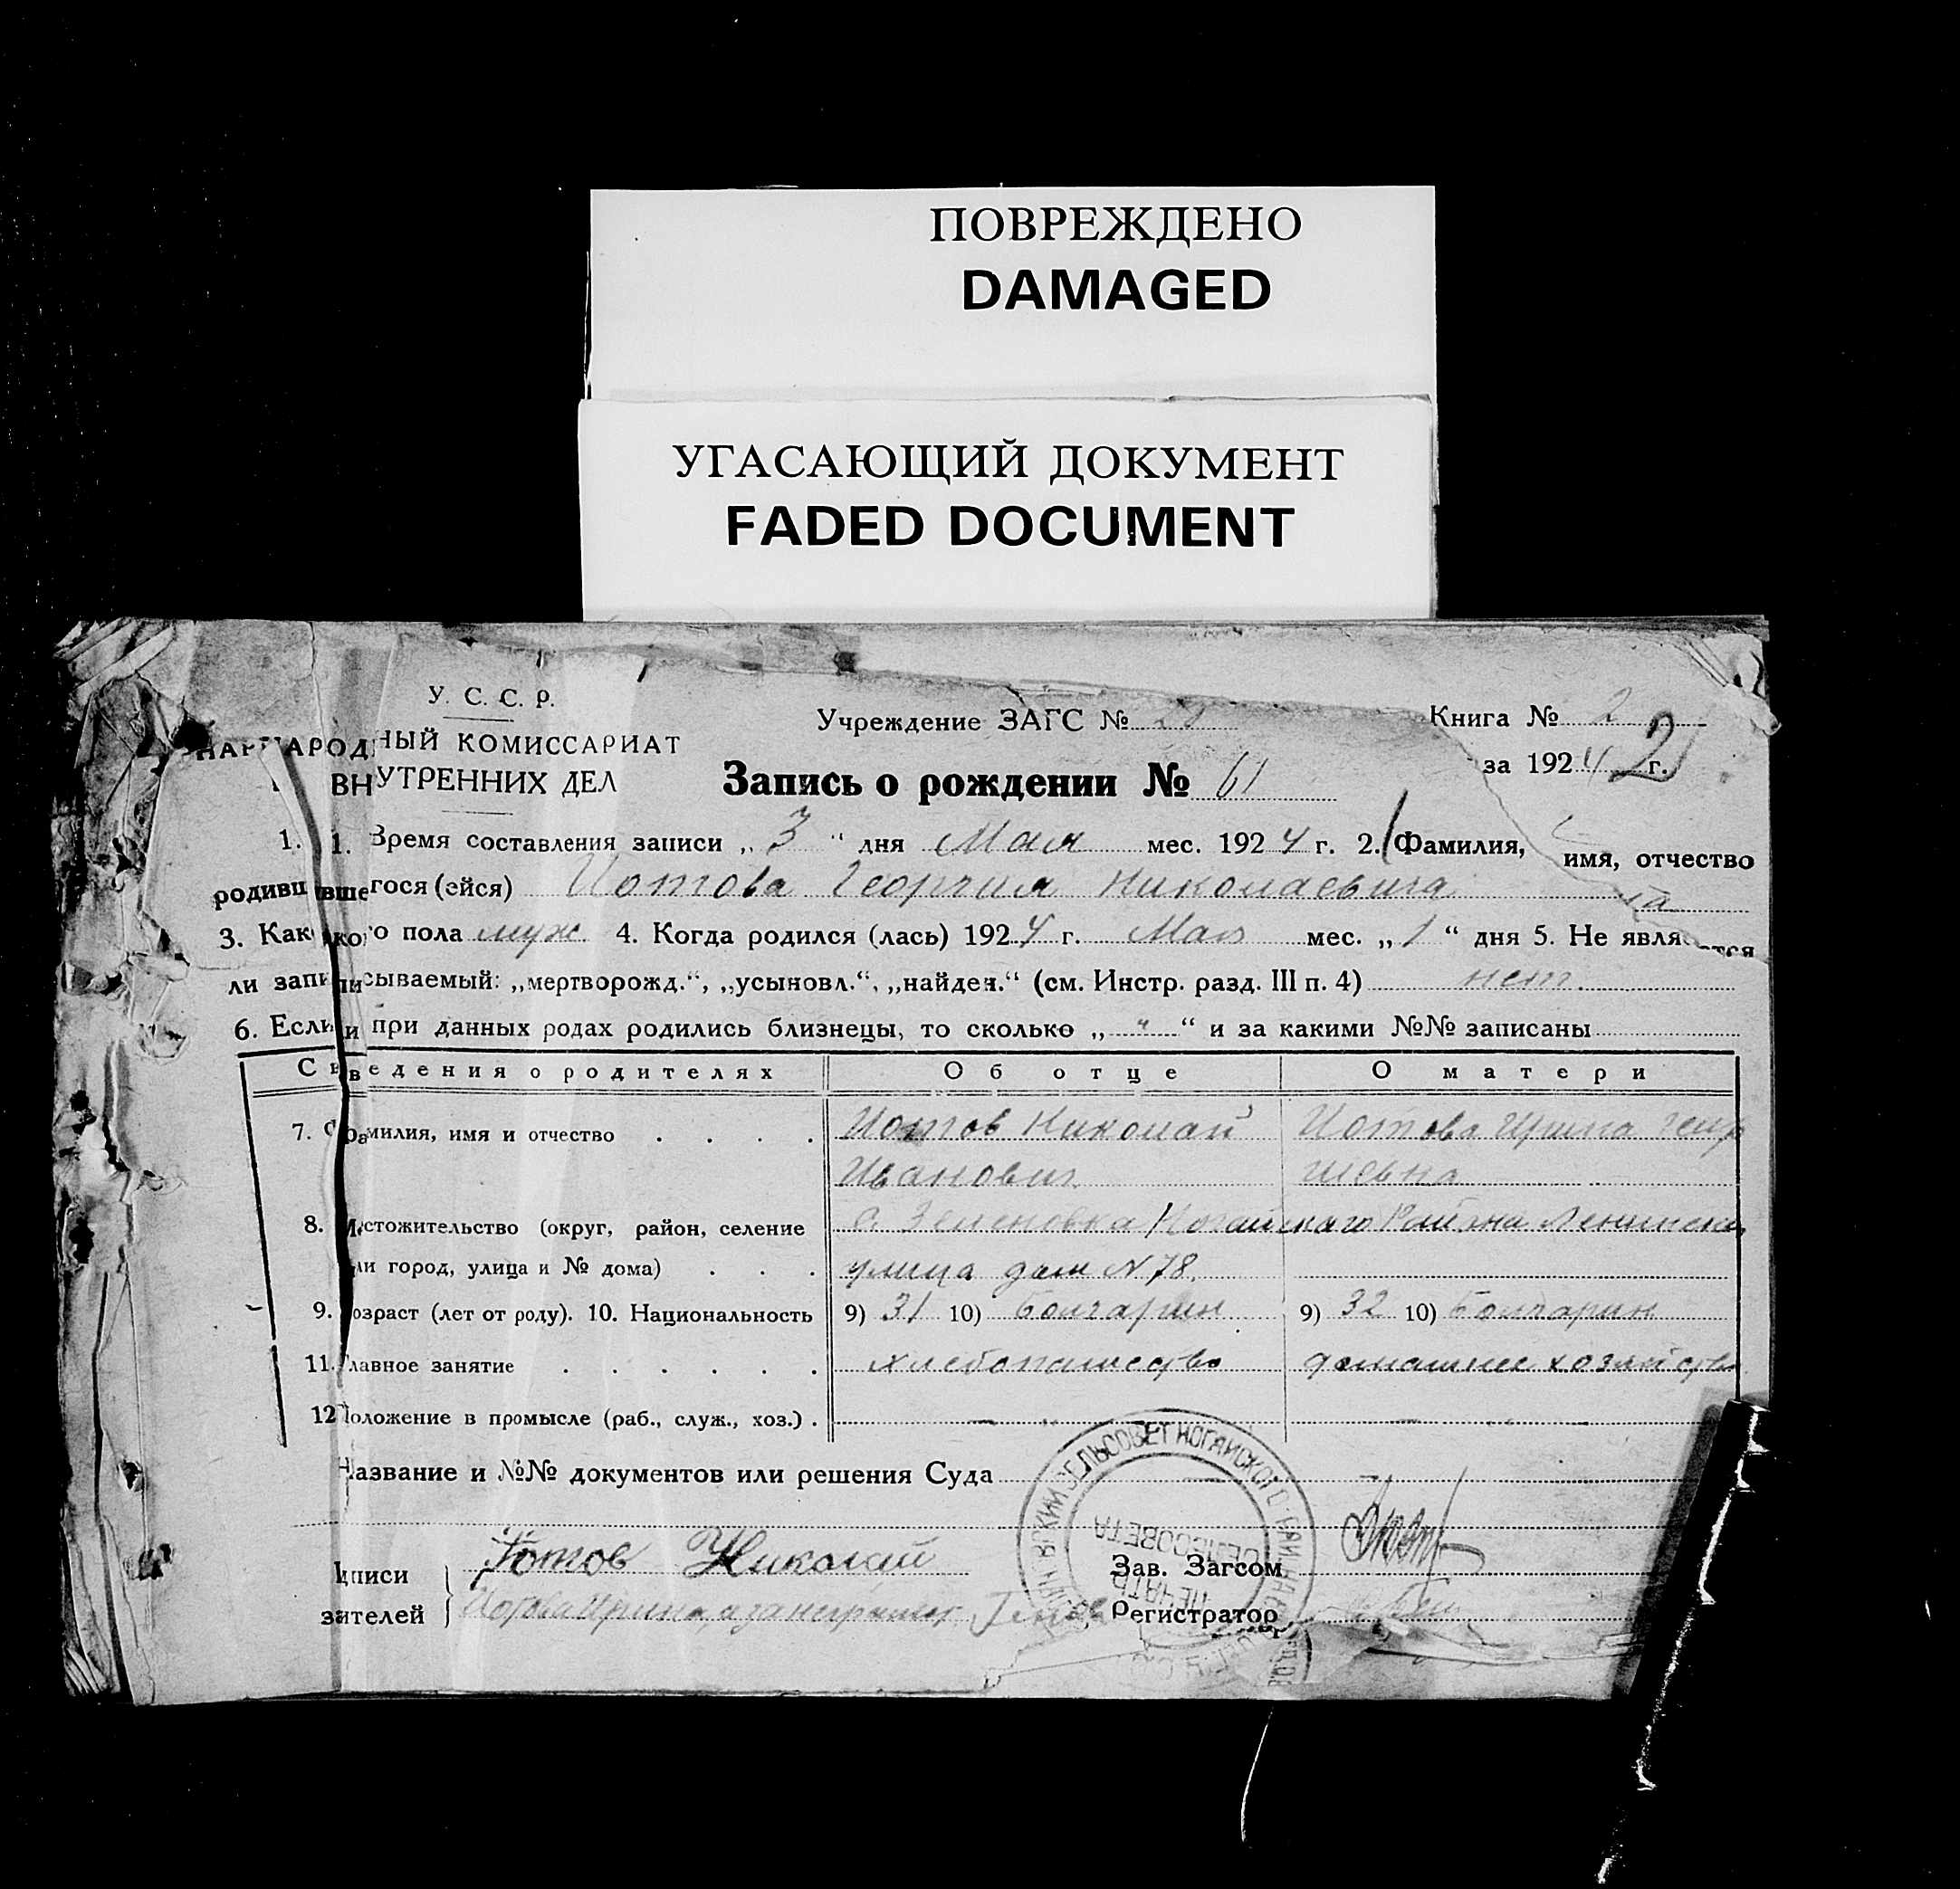 ПОВРЕЖДЕНО
DAMAGED
УГАСАЮЩИЙ ДОКУМЕНТ
FADED DOCUMENT
У. С. С. Р.
НЫЙ КОМИССАРИАТ
ВНУТРЕННИХ ДЕЛ
Учреждение ЗАГС №
Книга № 2
за 1924 г.
Запись о рождении № 61
1. Время составления записи „ 3 “ дня Мая мес. 1924 г. 2. Фамилия, имя, отчество
родившегося (ейся) Иотова Георгия Николаевича
3. Какого пола муж. 4. Когда родился (лась) 1924 г. Мая мес. „ 1 “ дня 5. Не является
ли записываемый: „мертворожд.“, „усыновл.“, „найден.“ (см. Инстр. разд. III п. 4) нет.
6. Если при данных родах родились близнецы, то сколько „ " “ и за какими №№ записаны
Сведения о родителях Об отце О матери
7. Фамилия, имя и отчество . . . . Иотов Николай Иотова Ирина Геор
Иванович гиевна
8. Местожительство (округ, район, селение с. Зеленовка Ногайского Района Ленинская
или город, улица и № дома) . . . улица дом N 78.
9. Возраст (лет от роду). 10. Национальность 9) 31 10) Болгарин 9) 32 10) Болгарин
11. Главное занятие . . . . . . хлебопашество домашнее хозяйство
12 Положение в промысле (раб., служ., хоз.) .
Название и №№ документов или решения Суда
СЕЛЬСОВЕТ НОГАЙСКОГО
ПЕЧАТЬ
СЕЛЬСОВЕТА
Иотов Николай
Зав. Загсом
Иотова Ирина, а за неграмот.
Регистратор